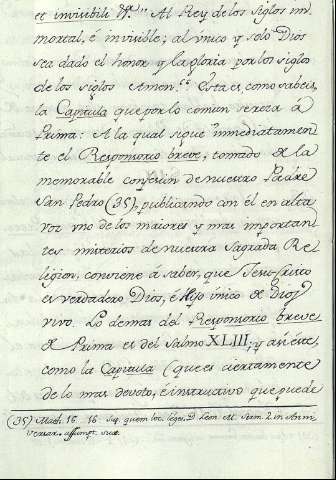 et invisibili &c." Al Rey de los siglos in-
mortal, è invisible; al unico y solo Dios
sea dado el honor y la gloria por los siglos
de los siglos Amen." Esta es, como sabeis,
la Capitula que por lo comun se reza á
Prima: A la qual sigue inmediatamen-
te el Responsorio breve, tomado de la
memorable confesion de nuestro Padre
San Pedro (35), publicando con él en alta
voz uno de los maiores y mas importan-
tes misterios de nuestra Sagrada Re-
ligion, conviene á saber, que Jesu-Christo
es verdadero Dios, è Hijo único de Dios
vivo. Lo demas del Responsorio breve
de Prima es del Salmo XLIII; y asi este,
como la Capitula (que es ciertamente
de lo mas devoto, è instructivo que puede
(35) Math. 16. 16. Sup. quem loc. leges D. Leon. M. Serm. 2. in Anni-
versar. assumpt. suae.